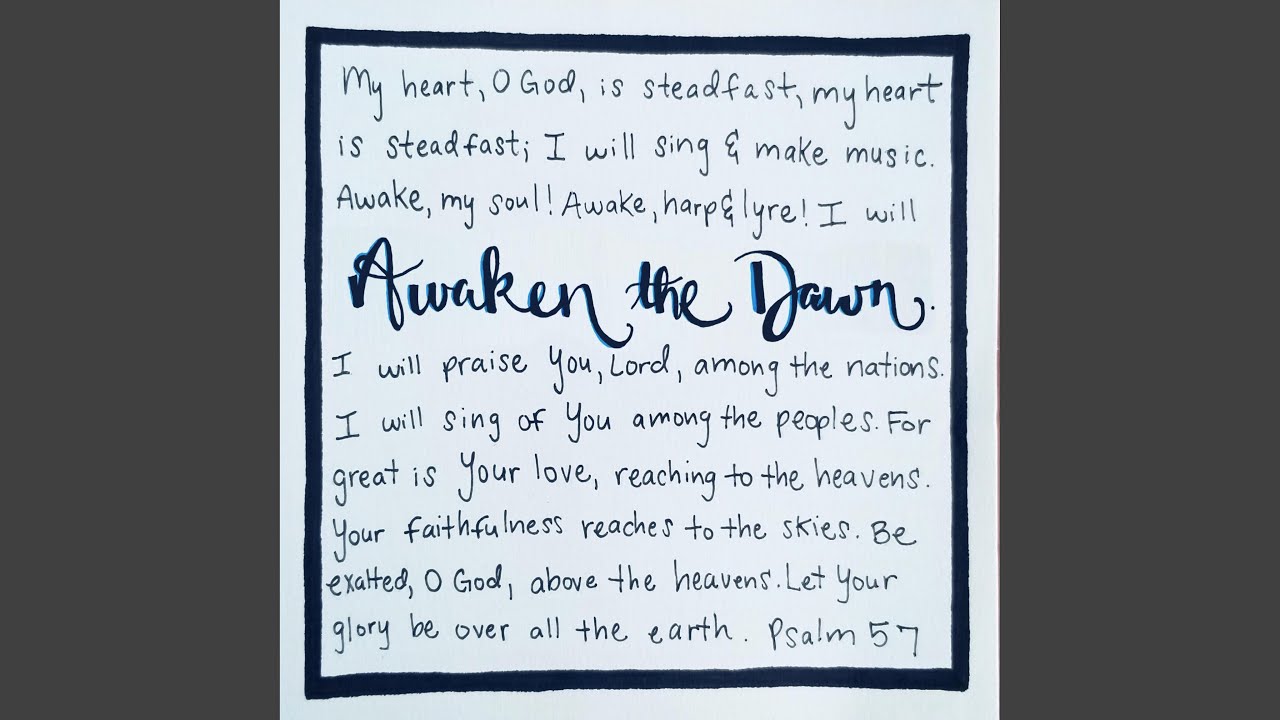 My heart, O God, is steadfast, my heart
is steadfast; I will sing & make music.
Awake, my soul! Awake, harp & lyre! I will
Awaken the Dawn.
I will praise You, Lord, among the nations.
I will sing of You among the peoples. For
great is Your love, reaching to the heavens.
Your faithfulness reaches to the skies. Be
exalted, O God, above the heavens. Let Your
glory be over all the earth. Psalm 57